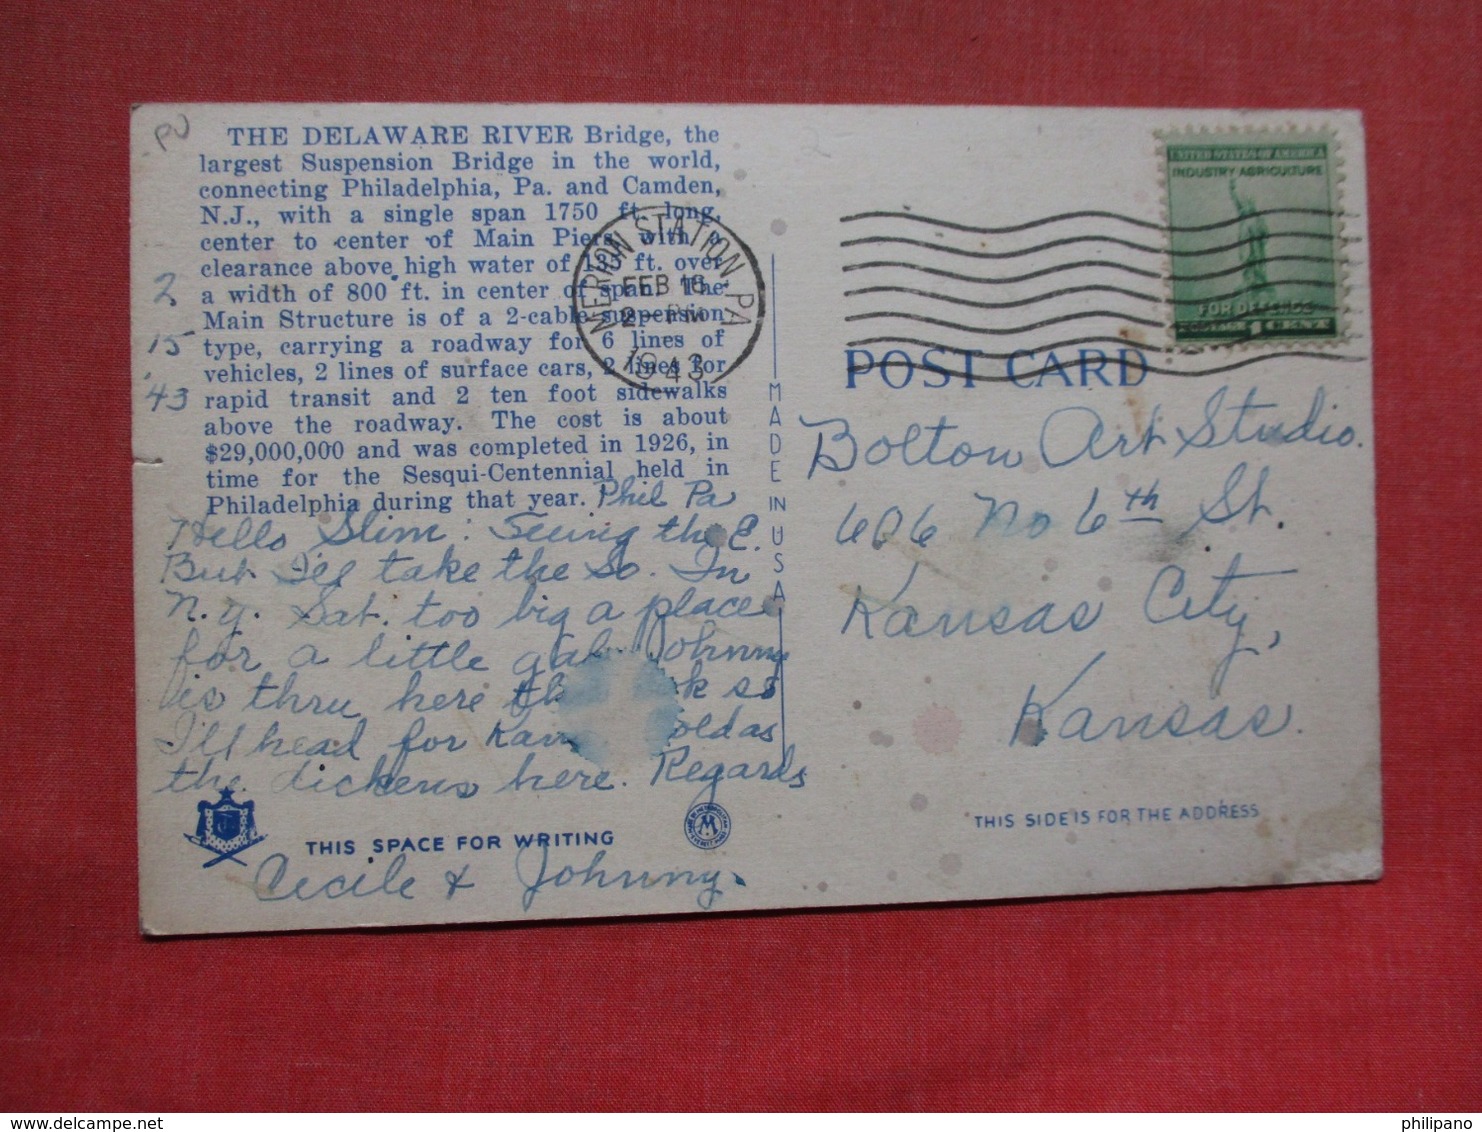 PU
THE DELAWARE RIVER Bridge, the
largest Suspension Bridge in the world,
connecting Philadelphia, Pa. and Camden,
N.J., with a single span 1750 ft. long,
center to center of Main Piers, with a
clearance above high water of ft. over
a width of 800 ft. in center of span. The
Main Structure is of a 2-cable suspension
type, carrying a roadway for 6 lines of
vehicles, 2 lines of surface cars, 2 lines for
rapid transit and 2 ten foot sidewalks
above the roadway. The cost is about
$29,000,000 and was completed in 1926, in
time for the Sesqui-Centennial held in
Philadelphia during that year.
2
15
'43
Phil Pa
Hello Slim: Seeing the E.
But I'll take the So. In
N.Y. Sat. too big a place
for a little gal. Johnny
is thru here so
I'll head for as
the dickens here. Regards
THIS SPACE FOR WRITING
Cecile & Johnny.
MERION STATION, PA
FEB 16
2 - PM
1943
MADE IN USA
M
2
UNITED STATES OF AMERICA
INDUSTRY AGRICULTURE
FOR DEFENSE
POSTAGE 1 CENT
POST CARD
Bolton Art Studio.
606 No 6th St.
Kansas City,
Kansas.
THIS SIDE IS FOR THE ADDRESS
www.delcampe.net
philipano